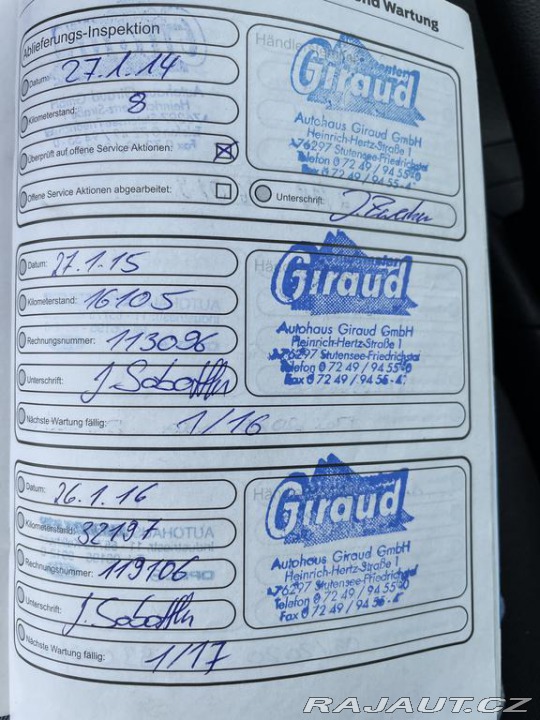 und Wartung
Ablieferungs-Inspektion
Datum: 27.1.14
Kilometerstand: 8
Überprüft auf offene Service Aktionen:
Offene Service Aktionen abgearbeitet:
Giraud
Autohaus Giraud GmbH
Heinrich-Hertz-Straße 1
76297 Stutensee-Friedrichstal
Telefon 0 72 49 / 94 55-0
Fax 0 72 49 / 94 55-4
Unterschrift:
Datum: 27.1.15
Kilometerstand: 16105
Rechnungsnummer: 113096
Unterschrift:
Nächste Wartung fällig: 1/16
Giraud
Autohaus Giraud GmbH
Heinrich-Hertz-Straße 1
76297 Stutensee-Friedrichstal
Telefon 0 72 49 / 94 55-0
Fax 0 72 49 / 94 55-4
Datum: 26.1.16
Kilometerstand: 32197
Rechnungsnummer: 119106
Unterschrift:
Nächste Wartung fällig: 1/17
Giraud
Autohaus Giraud GmbH
Heinrich-Hertz-Straße 1
76297 Stutensee-Friedrichstal
Telefon 0 72 49 / 94 55-0
Fax 0 72 49 / 94 55-4
RAJAUT.CZ